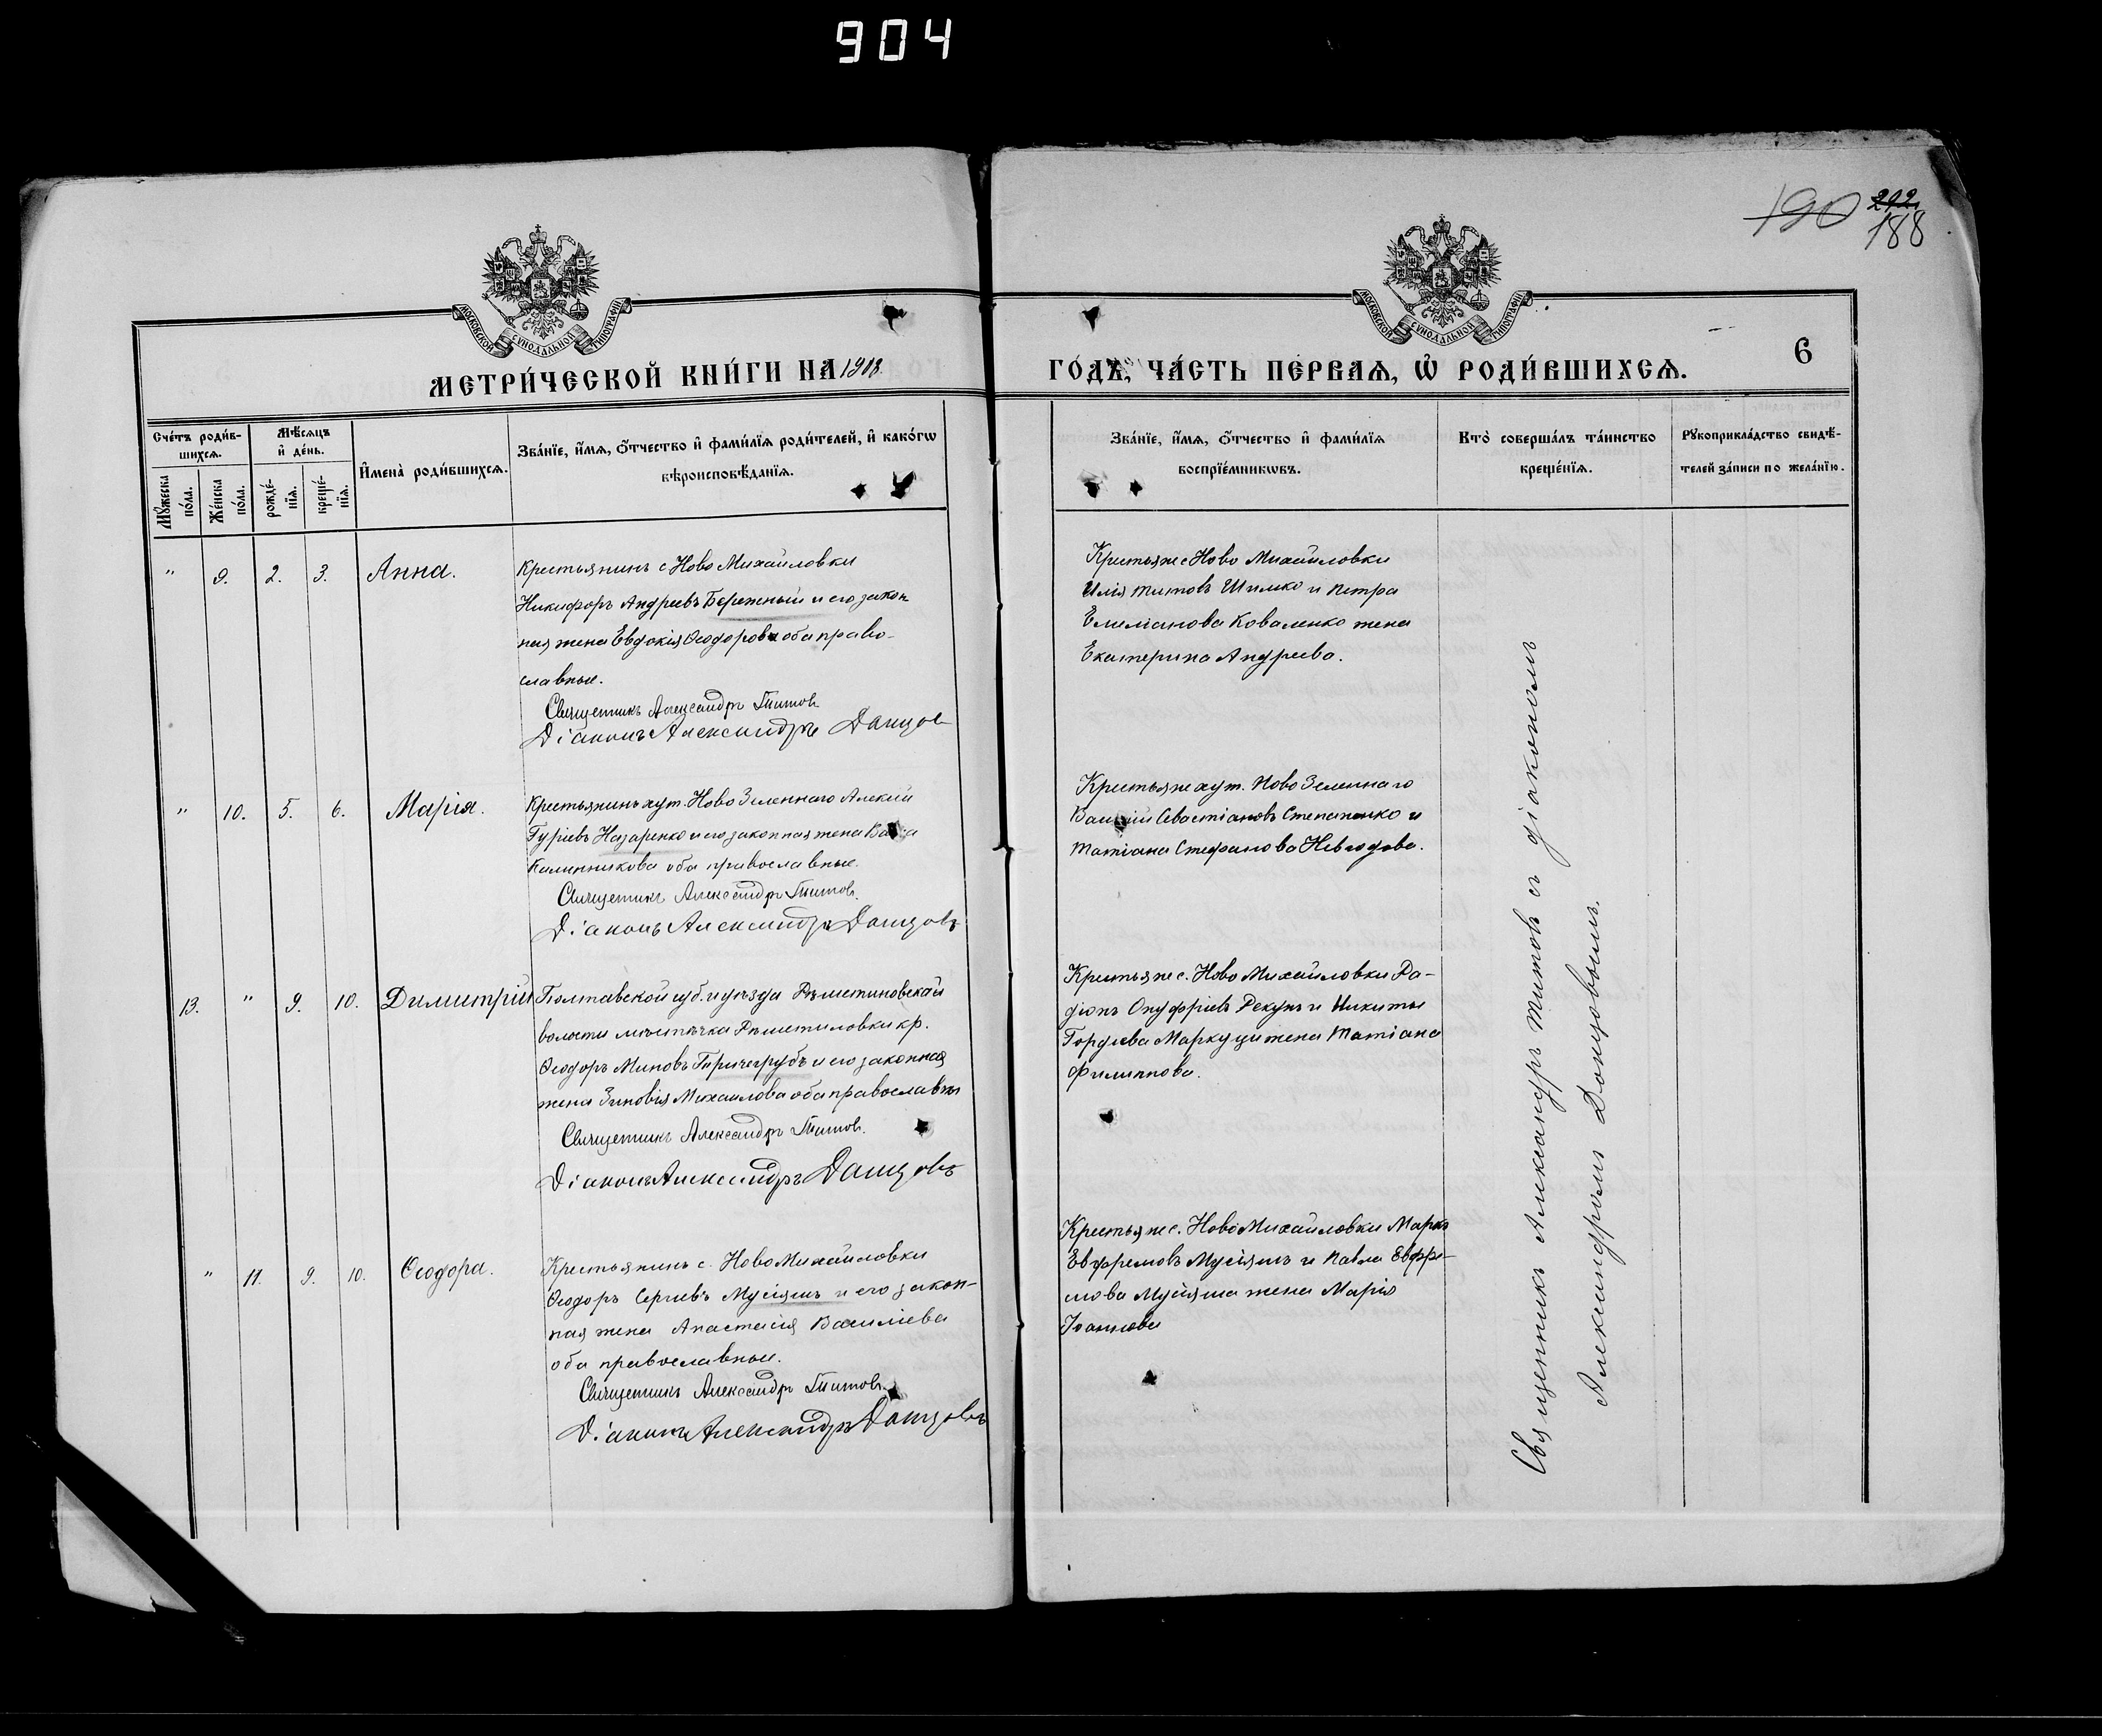 904
190 292
188
МОСКОВСКОЙ СѴНОДАЛЬНОЙ ТИПОГРАФІИ
МОСКОВСКОЙ СѴНОДАЛЬНОЙ ТИПОГРАФІИ
МЕТРИ́ЧЕСКОЙ КНИ́ГИ НА 1908.
ГО́ДЪ, ЧА́СТЬ ПЕ́РВАѦ, Ѡ҆ РОДИ́ВШИХСѦ.
6
Сче́тъ роди́в-
шихсѧ.
Мѣ́сѧцъ
и҆ де́нь.
Мꙋ́жеска
по́ла.
Же́нска
по́ла.
рожде́-
нїѧ.
креще́-
нїѧ.
И҆мена̀ роди́вшихсѧ.
Зва́нїе, и҆́мѧ, ѻ҆́тчество и҆ фами́лїѧ роди́телей, и҆ како́гѡ
вѣроисповѣ́данїѧ.
Зва́нїе, и҆́мѧ, ѻ҆́тчество и҆ фами́лїѧ
воспрїе́мникѡвъ.
Кто̀ соверша́лъ та́инство
креще́нїѧ.
Рꙋкоприкла́дство свидѣ́-
телей за́писи по жела́нїю.
" 9. 2. 3. Анна.
Крестьянинъ с Ново Михайловки
Никифоръ Андреевъ Бережный и его закон
ная жена Евдокія Ѳеодорова оба право-
славные.
Священникъ Александръ Титовъ
Діаконъ Александръ Донцов
Крестьяне с Ново Михайловки
Илія Титовъ Шимко и Петра
Емеліанова Коваленко жена
Екатерина Андреева.
" 10. 5. 6. Марія.
Крестьянинъ хут. Ново Зеленнаго Алексій
Гуріевъ Назаренко и его законная жена
Калинникова оба православные.
Священникъ Александръ Титовъ.
Діаконъ Александръ Донцовъ
Крестьяне хут. Ново Зеленнаго
Василій Севастіановъ Степаненко и
Татіана Стефанова
13. " 9. 10. Димитрій
Полтавской губ. и уезда Решетиловской
волости местечка Решетиловки кр.
Ѳеодоръ Миновъ и его законная
жена Зиновія Михаилова оба православны
Священникъ Александръ Титовъ.
Діаконъ Александръ Донцовъ
Крестьяне с. Ново Михайловки Ра-
діонъ Онуфріевъ Рекунъ и Никиты
Гордіева Маркуци жена Татіана
Филиппова.
" 11. 9. 10. Ѳеодора.
Крестьянинъ с. Ново Михайловки
Ѳеодоръ Сергіевъ Мусіяшъ и его закон-
ная жена Анастасія Василіева
оба православные.
Священникъ Александръ Титовъ.
Діаконъ Александръ Донцовъ
Крестьяне с. Ново Михайловки Маркъ
Евфремовъ Мусіяшъ и Павла Евфре-
мова Мусіяша жена Марія
Іоаннова
Священникъ Александръ Титовъ съ діакономъ
Александромъ Донцовымъ.